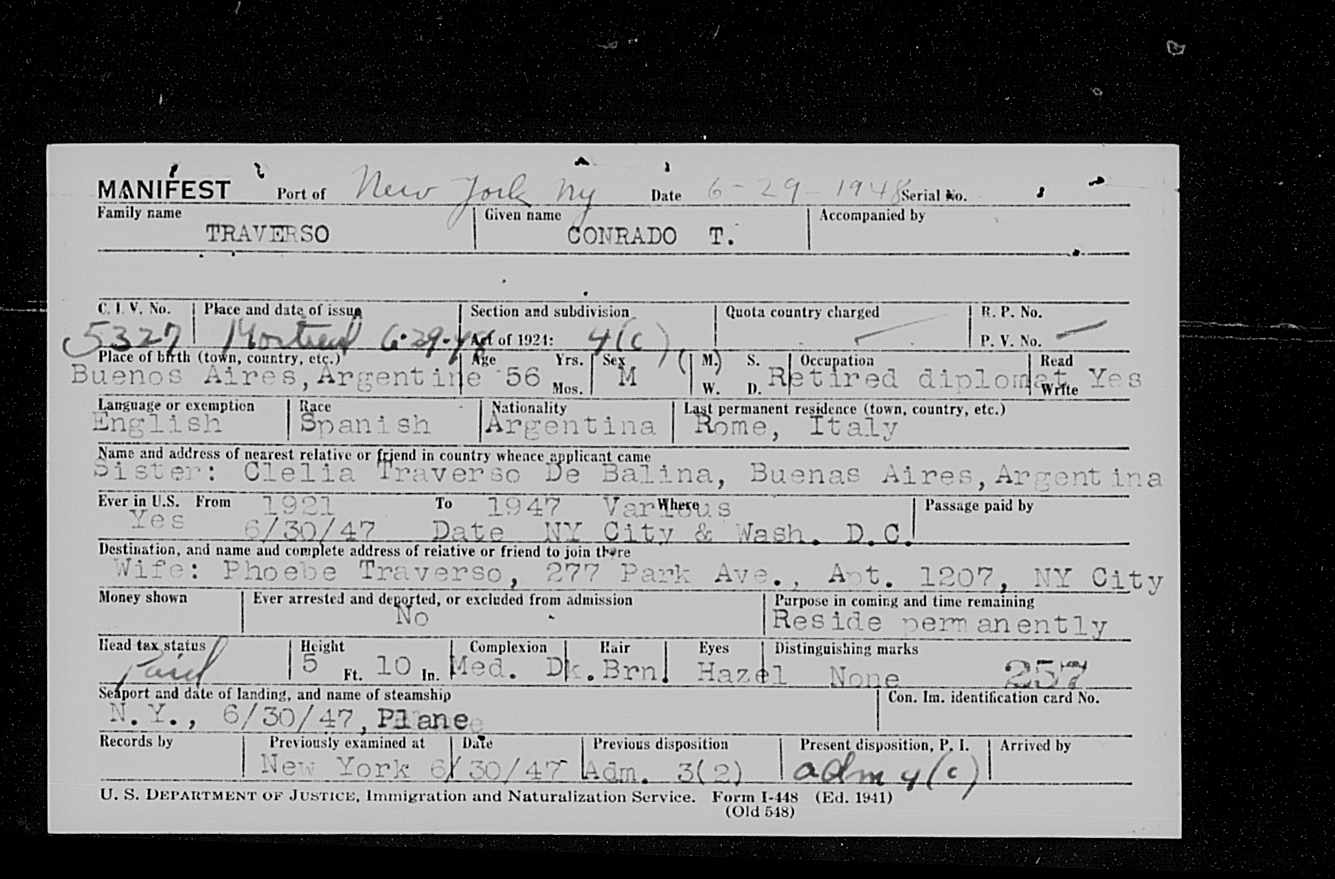 MANIFEST Port of New York Ny Date 6-29-1948 Serial No.
Family name Given name Accompanied by
TRAVERSO CONRADO T.
C. I. V. No. Place and date of issue Section and subdivision Quota country charged R. P. No.
5327 Montreal 6-29-48 Act of 1924: 4(c) — P. V. No. —
Place of birth (town, country, etc.) Age Yrs. Sex (M.) S. Occupation Read
Buenos Aires, Argentine 56 Mos. M W. D. Retired diplomat Write Yes
Language or exemption Race Nationality Last permanent residence (town, country, etc.)
English Spanish Argentina Rome, Italy
Name and address of nearest relative or friend in country whence applicant came
Sister: Clelia Traverso De Balina, Buenas Aires, Argentina
Ever in U.S. From 1921 To 1947 Various Where Passage paid by
Yes 6/30/47 Date NY City & Wash. D.C.
Destination, and name and complete address of relative or friend to join there
Wife: Phoebe Traverso, 277 Park Ave., Apt. 1207, NY City
Money shown Ever arrested and deported, or excluded from admission Purpose in coming and time remaining
No Reside permanently
Head tax status Height Complexion Hair Eyes Distinguishing marks
Paid 5 Ft. 10 In. Med. Dk. Brn. Hazel None 257
Seaport and date of landing, and name of steamship Con. Im. identification card No.
N.Y., 6/30/47, Plane
Records by Previously examined at Date Previous disposition Present disposition, P. I. Arrived by
New York 6/30/47 Adm. 3(2) adm 4(c)
U. S. DEPARTMENT OF JUSTICE, Immigration and Naturalization Service. Form I-448 (Ed. 1941)
(Old 548)